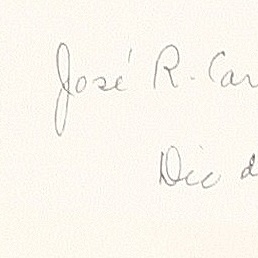 José R. Car
Dic d